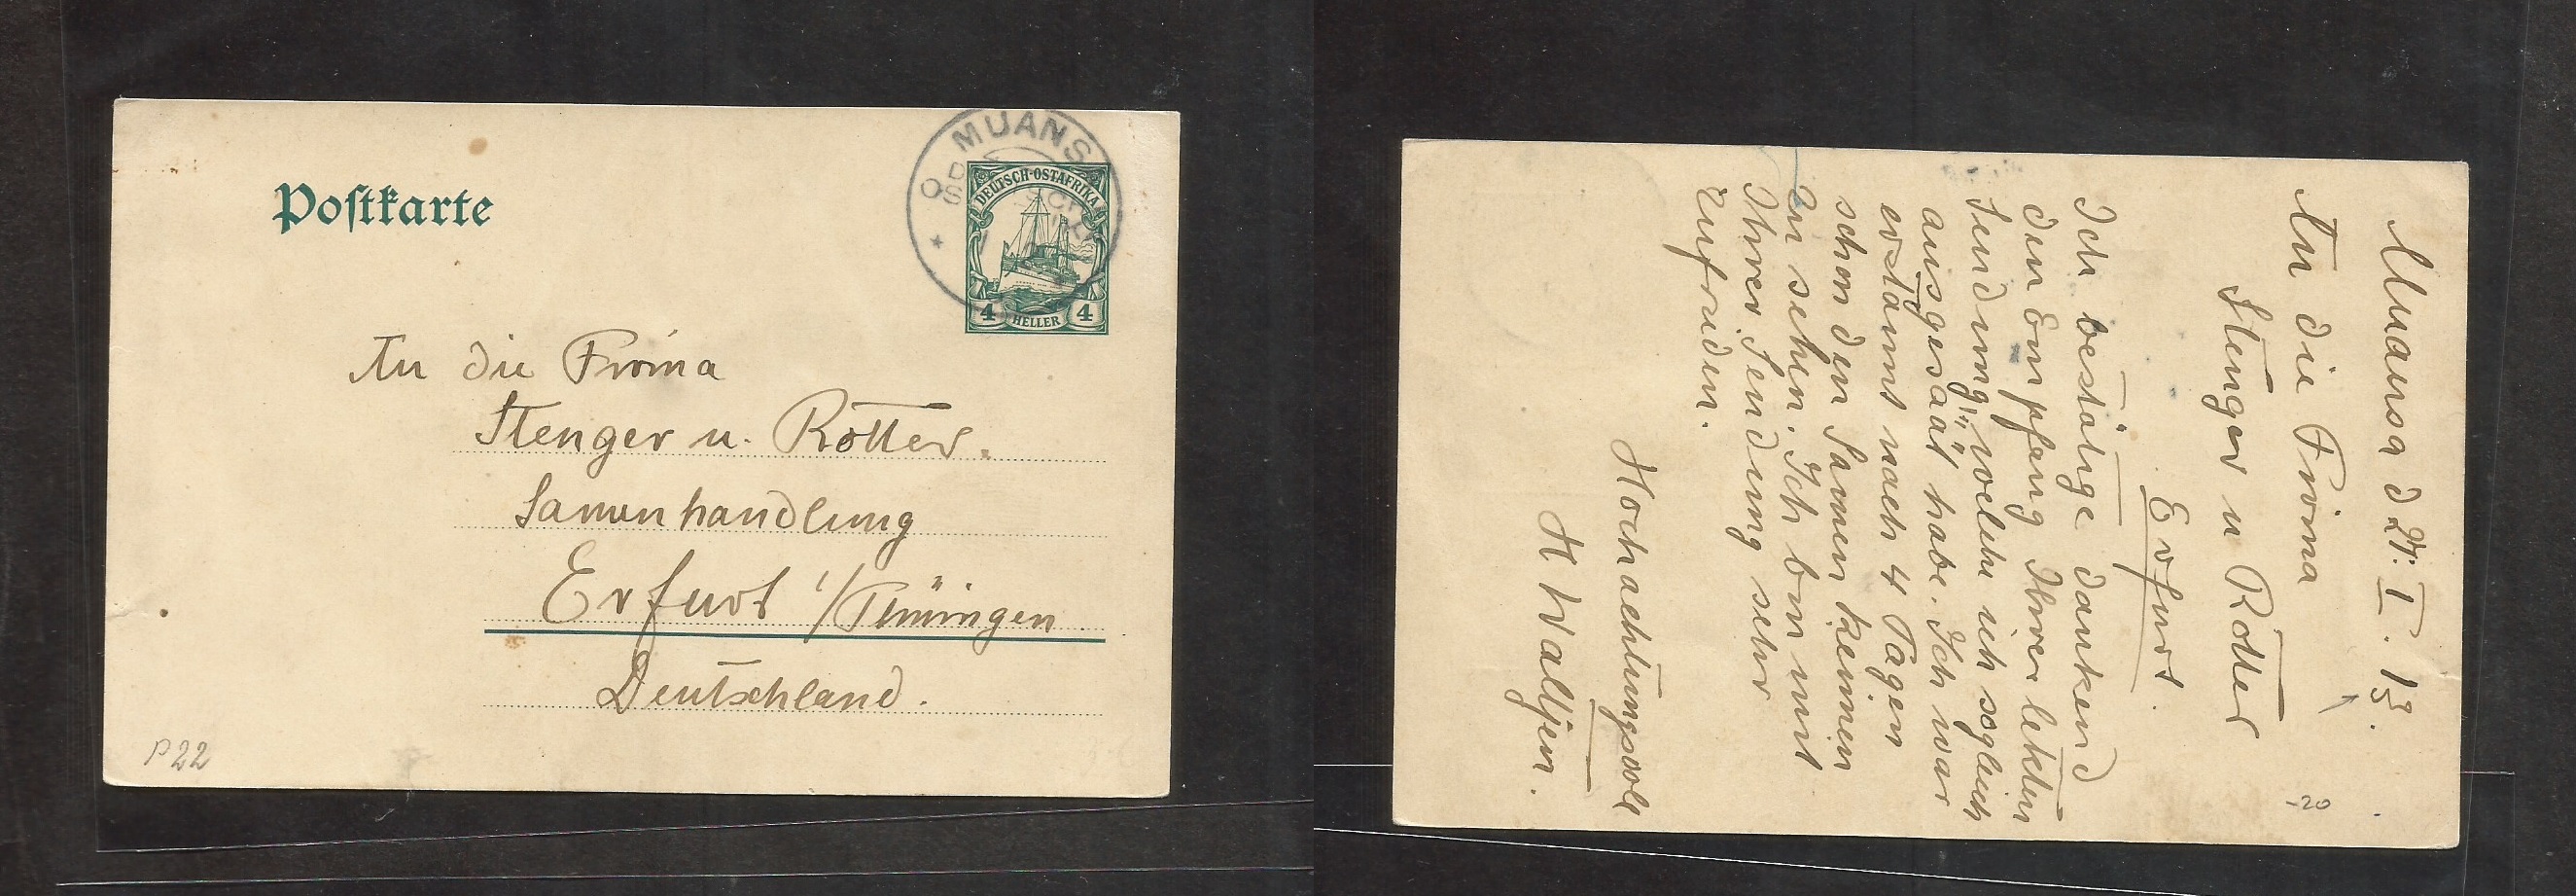 Postkarte
MUANS
DEUTSCH-OSTAFRIKA
4 HELLER 4
An die Firma
Stenger u. Rotter.
Samenhandlung
Erfurt i/Thüringen
Deutschland.
P22
Muansa d 27. I. 13.
An die Firma
Stenger u Rotter
Erfurt.
Ich bestätige dankend
den Empfang Ihrer letzten
Sendung, welche ich sogleich
ausgesäät habe. Ich war
erstaunt nach 4 Tagen
schon den Samen keimen
zu sehen. Ich bin mit
Ihrer Sendung sehr
zufrieden.
Hochachtungsvoll
H Waltjen.
-20